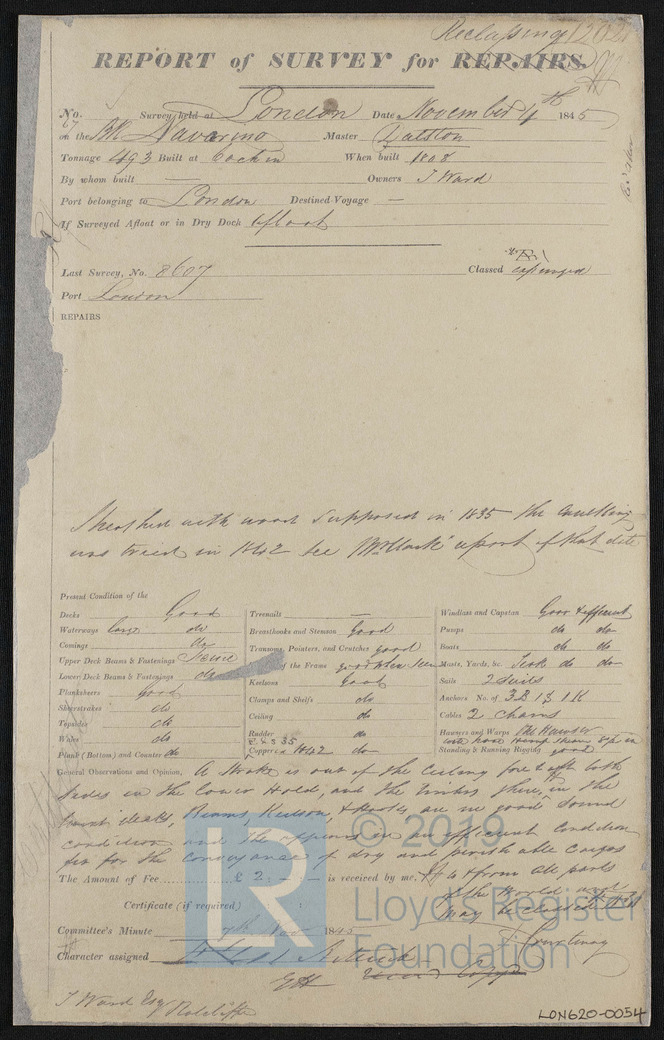 Reclassing
REPORT of SURVEY for REPAIRS.
No. 67 Survey held at London Date November 4th 1845
on the Bk Navarino Master
Tonnage 493 Built at Cochin When built 1808
By whom built — Owners J Ward
Port belonging to London Destined Voyage —
If Surveyed Afloat or in Dry Dock Afloat
Last Survey, No. 8607 Classed expunged
Port London
REPAIRS
Sheathed with wood supposed in 1835 the caulking
was tried in 1842 see report of that date
Present Condition of the
Decks Good
Waterways do
Comings do
Upper Deck Beams & Fastenings
Lower Deck Beams & Fastenings do
Planksheers good
Sheerstrakes do
Topsides do
Wales do
Plank (Bottom) and Counter do
Treenails —
Breasthooks and Stemson good
Transoms, Pointers, and Crutches good
of the Frame good when seen
Keelsons Good
Clamps and Shelfs do
Ceiling do
Rudder do
Copper 1842 do
Windlass and Capstan Good & efficient
Pumps do do
Boats do do
Masts, Yards, &c. do do
Sails 2 Suits
Anchors No. of 3 B 1 S 1 K
Cables 2 Chains
Hawsers and Warps
Standing & Running Rigging good
General Observations and Opinion, A Strake is out of the Ceiling fore & aft both
sides in the lower Hold, and the timbers there, in the
Beams, Keelson, are in good sound
condition and she appears in an efficient condition
fit for the conveyance of dry and perishable Cargos
The Amount of Fee £ 2 : — : — is received by me, to & from all parts
of the World and
Certificate (if required) may be classed
Committee's Minute 7th Nov 1845
Courtenay
Character assigned
J Ward Esq
Ratcliffe
© 2019
LR
Lloyd's Register
Foundation
LON620-0054